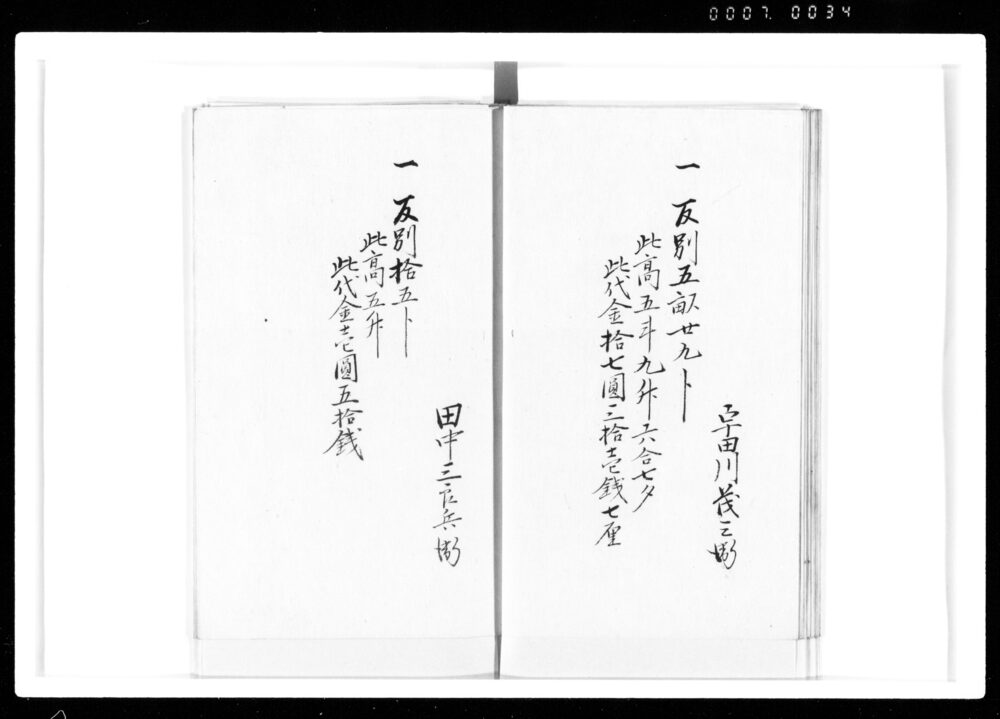 宇田川茂三
一 反別五畝廿九卜
此高五斗九升六合七夕
此代金拾七圓三拾壱銭七厘
田中三 兵衛
一 反別拾五卜
此高五升
此代金壱圓五拾銭
0007 0034